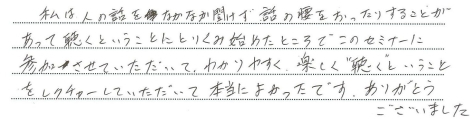 私は人の話をなかなか聞けず話の腰をおったりすることが
あって聴くということにとりくみ始めたところでこのセミナーに
参加させていただいて、わかりやすく、楽しく"聴く"ということ
をレクチャーしていただいて本当によかったです。ありがとう
ございました